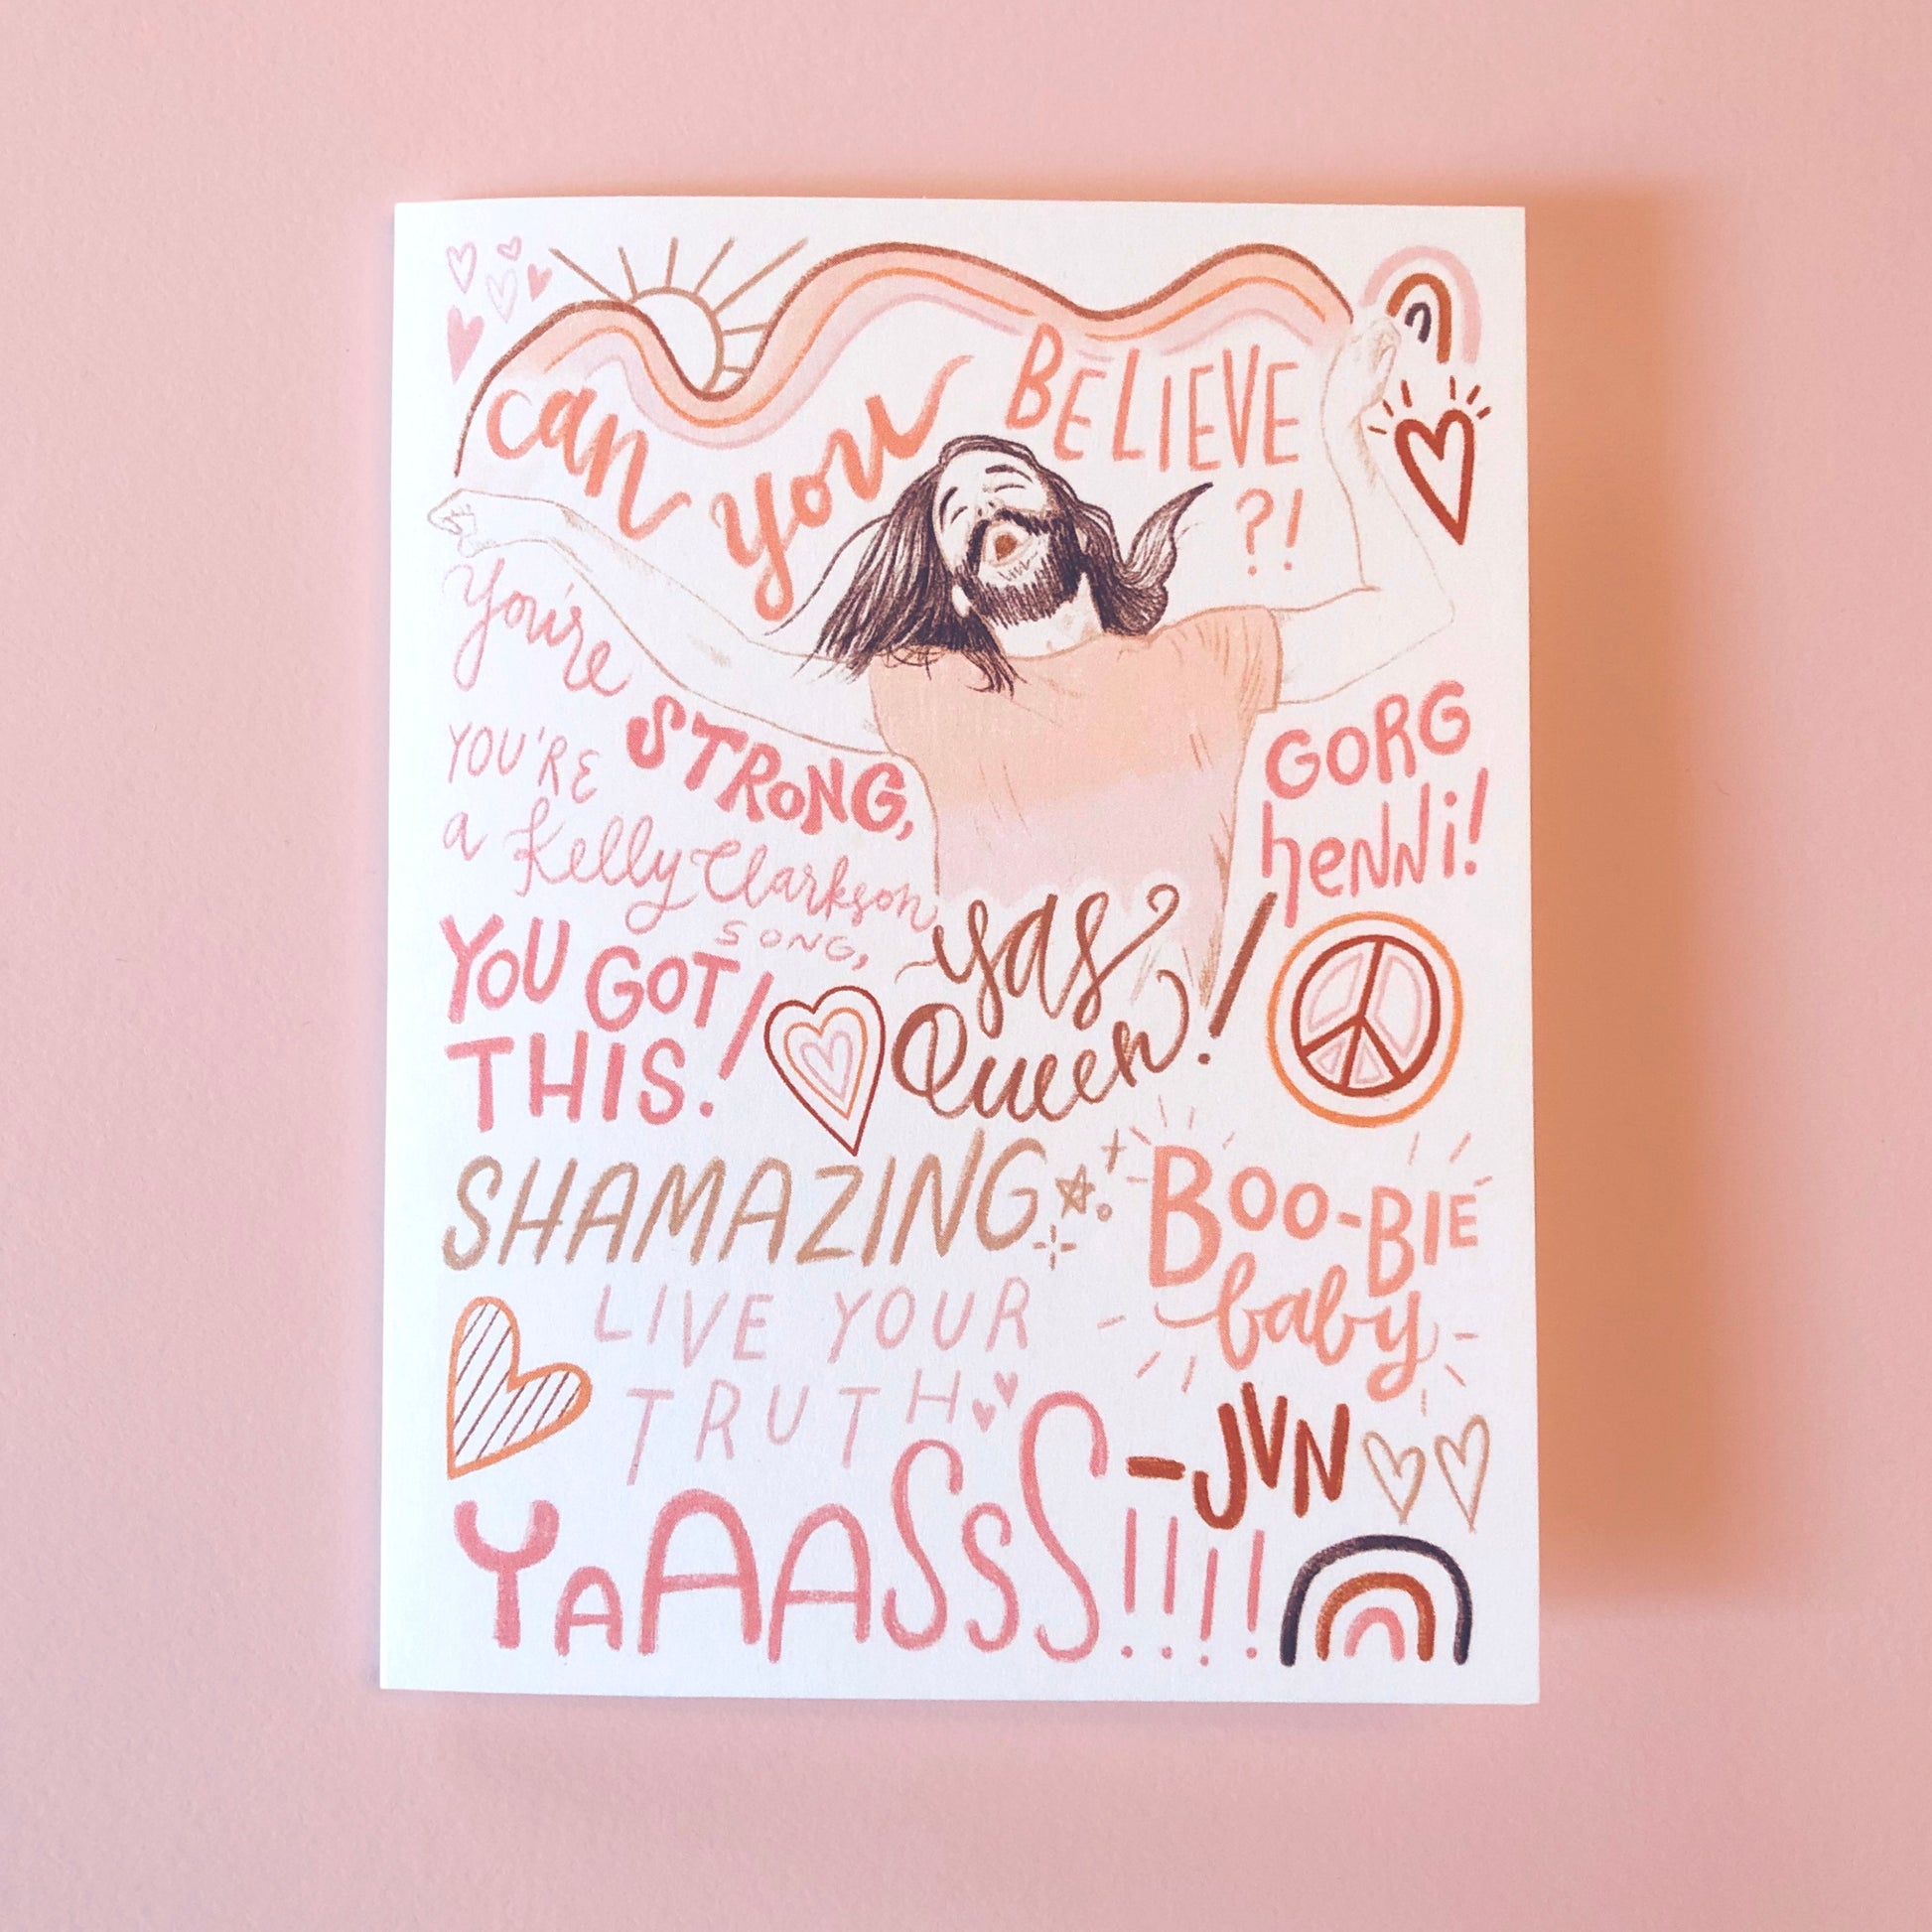 can you BELIEVE
?!
You're STRONG,
YOU'RE
a Kelly Clarkson
SONG,
YOU GOT
THIS!
GORG
henNi!
yas
Queen!
SHAMAZING
BOO-BIE
baby
LIVE YOUR
TRUTH
-JVN
YAAASSS!!!!